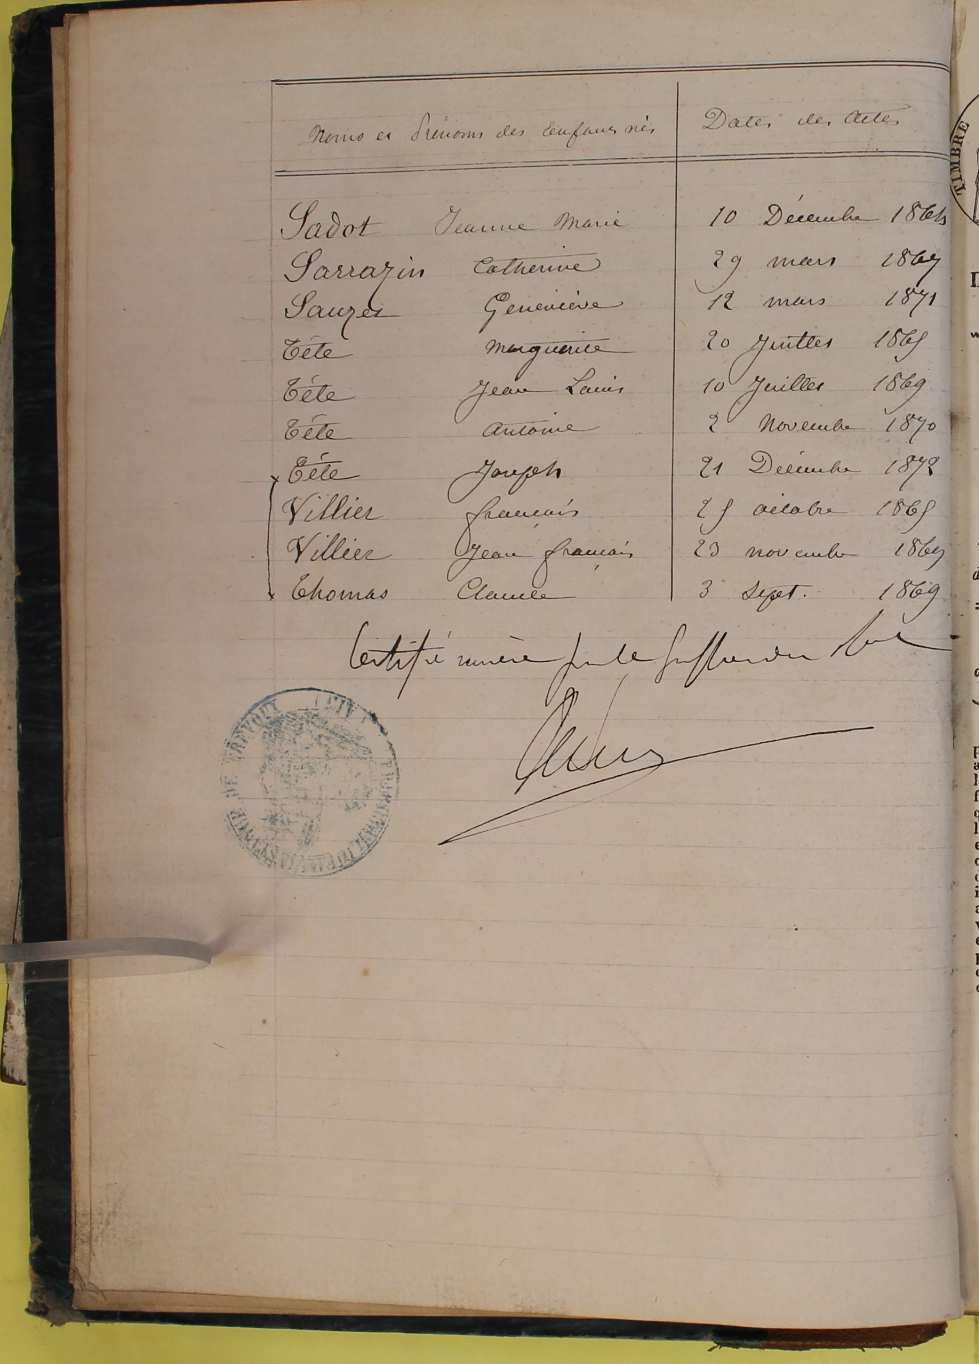 Noms et Prénoms des Enfans nés Dates des Actes
Sadot Jeanne Marie 10 Décembre 1864
Sarrazin Catherine 29 mars 1867
Sauzes Geneviève 12 mars 1871
Tête Marguerite 20 Juillet 1865
Tête Jean Louis 10 Juillet 1869
Tête Antoine 2 Novembre 1870
Tête Joseph 21 Décembre 1872
Villier françois 25 octobre 1865
Villier Jean françois 23 novembre 1867
Thomas Claude 3 Sept. 1869
Certifié par le Greffier
DE TRÉVOUX (AIN)
TIMBRE